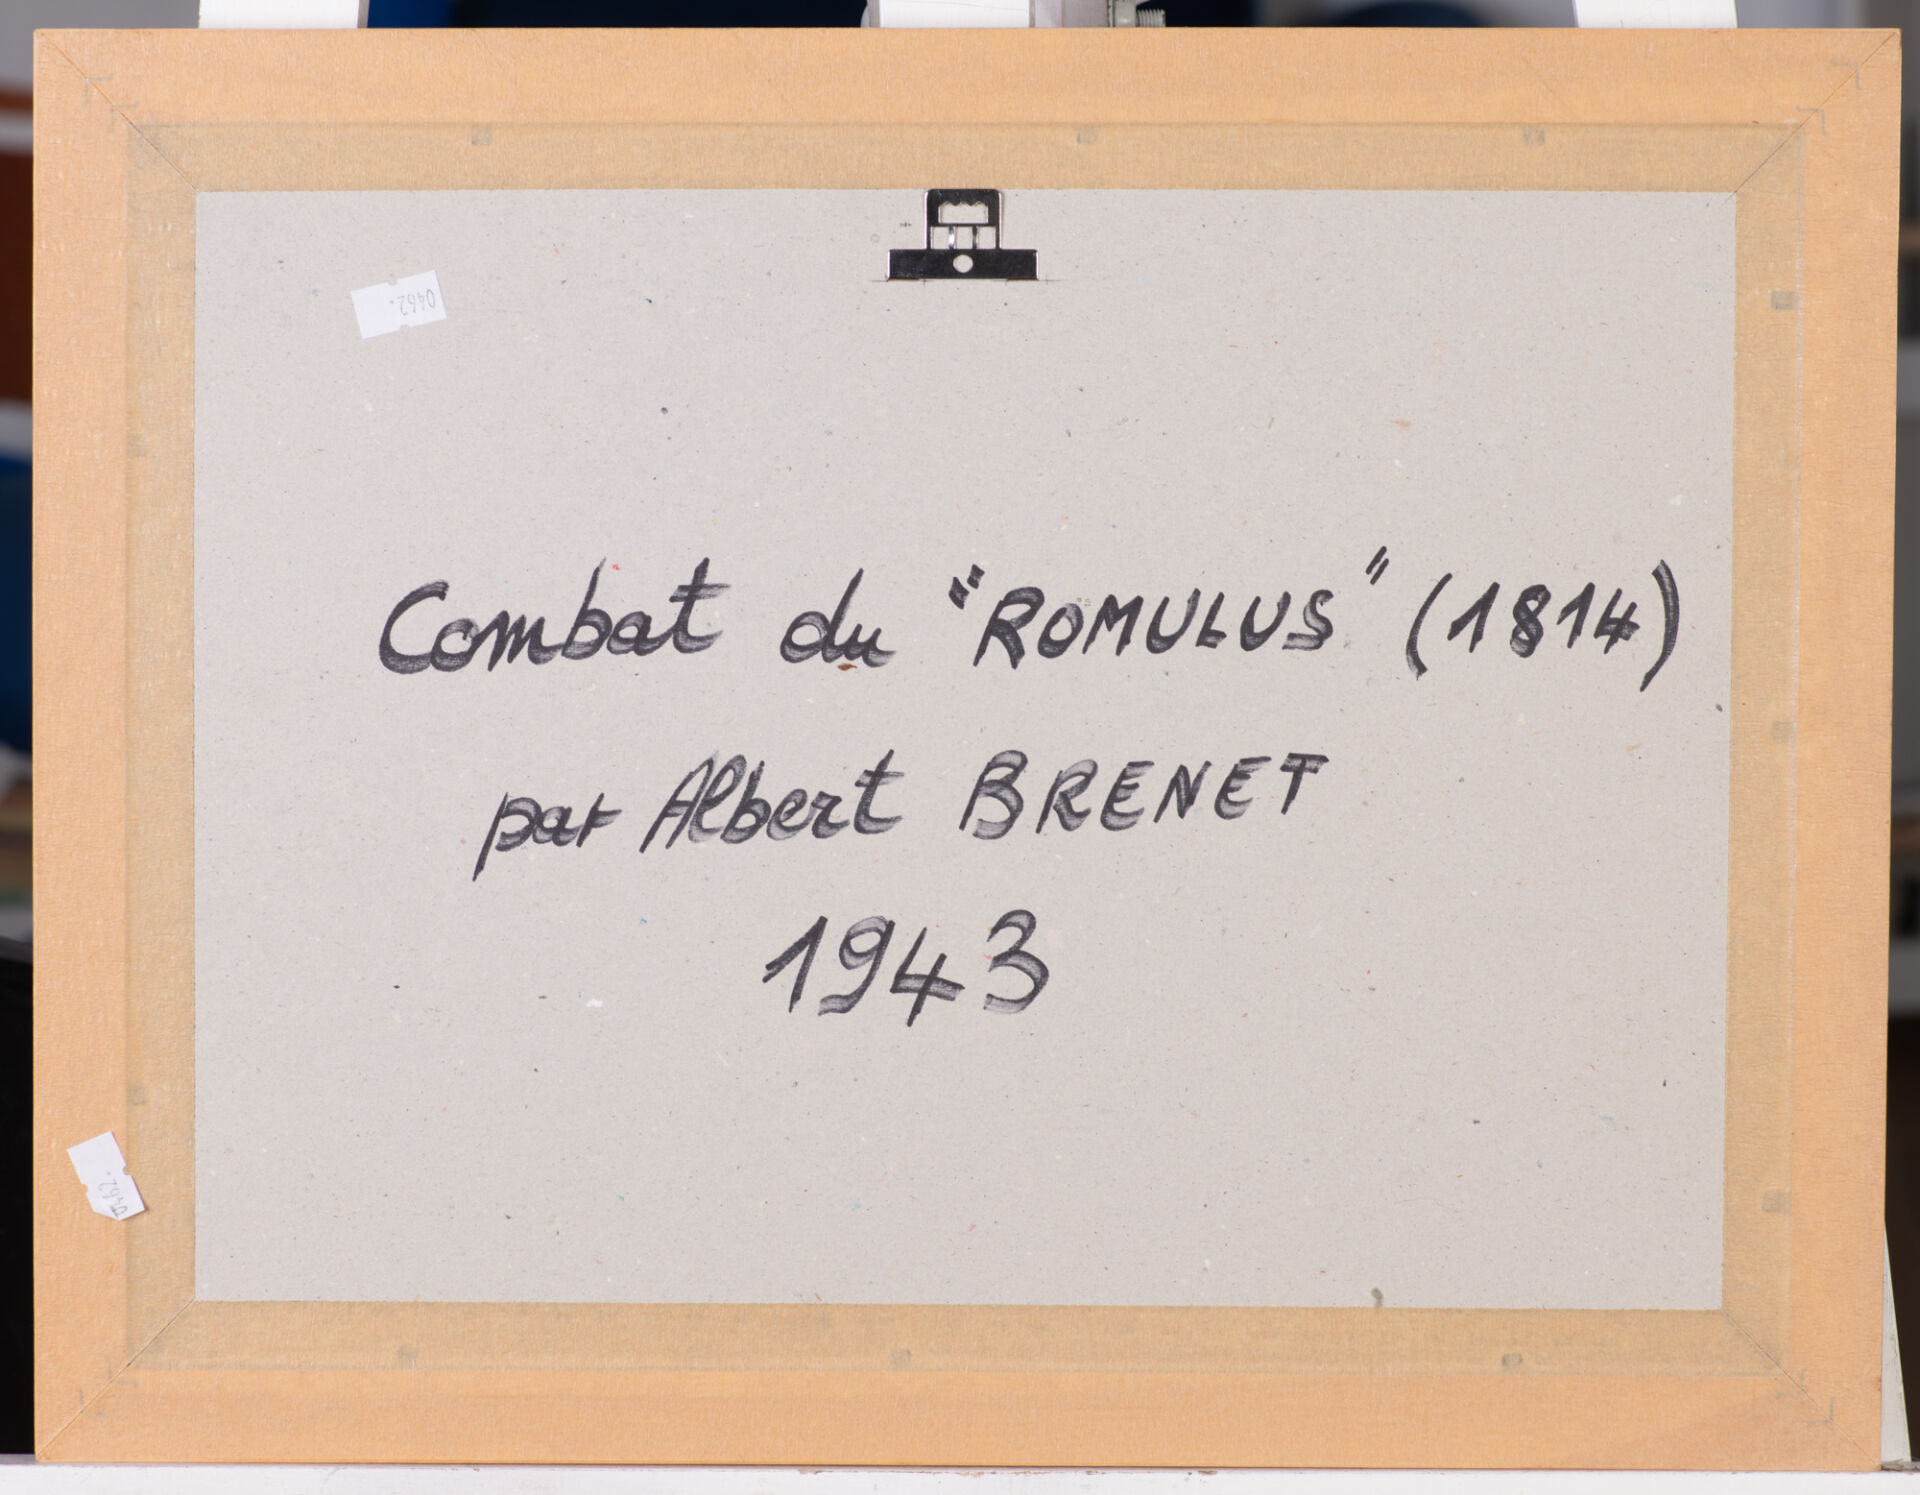 0462.
Combat du "ROMULUS" (1814)
par Albert BRENET
1943
0462.